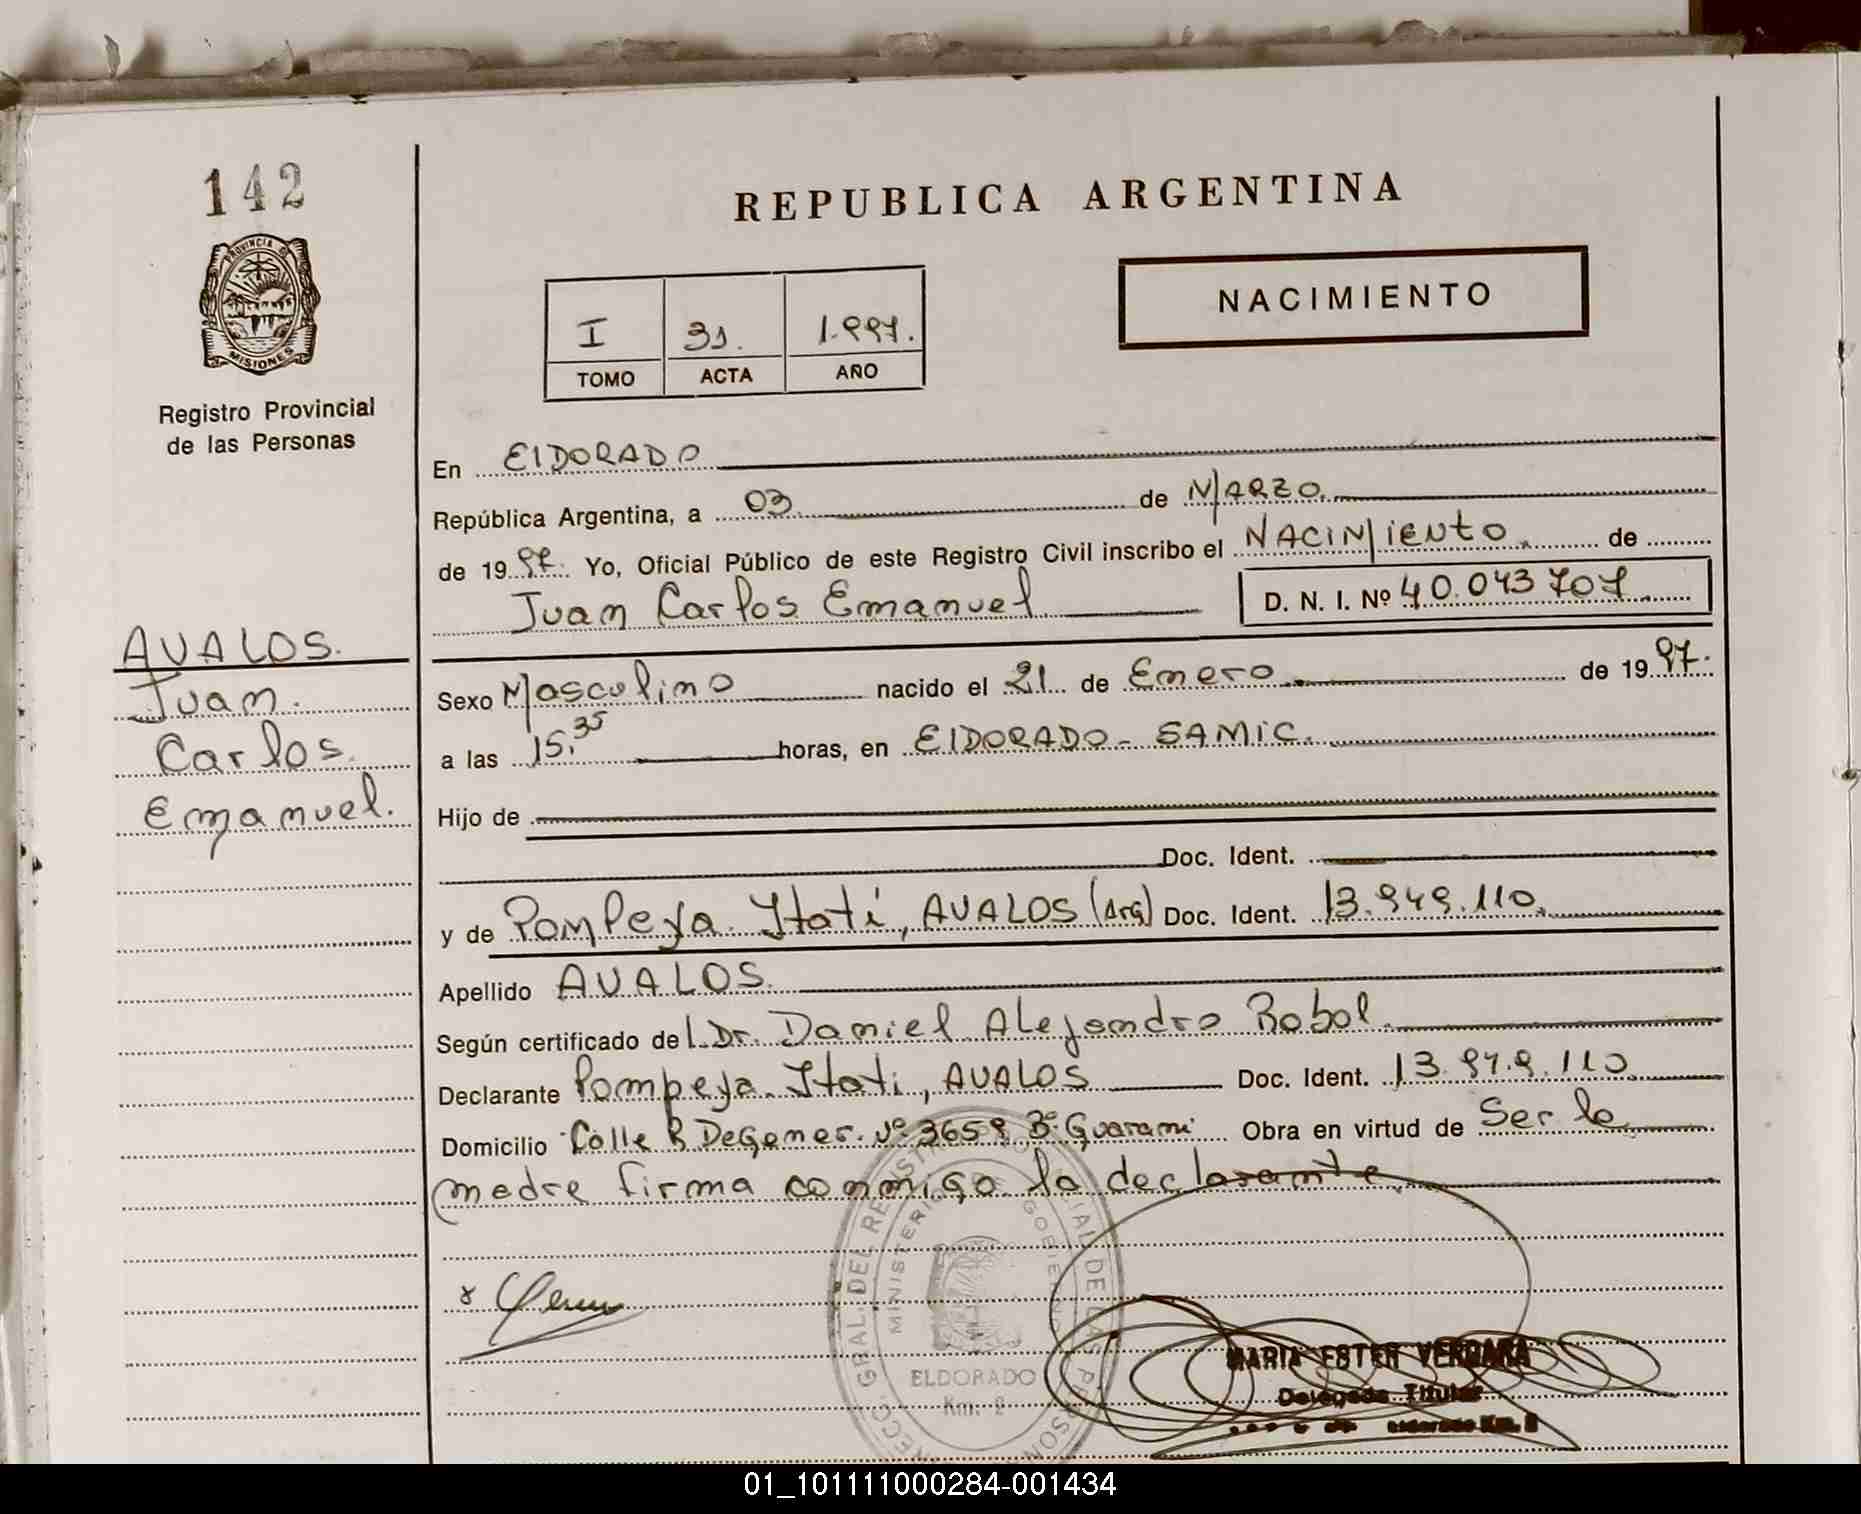 142
PROVINCIA DE
MISIONES
Registro Provincial
de las Personas
AVALOS.
Juan.
Carlos.
Emanuel.
REPUBLICA ARGENTINA
NACIMIENTO
I 31. 1.997.
TOMO ACTA AÑO
En ElDORADO
República Argentina, a 03. de MARZO.
de 1997. Yo, Oficial Público de este Registro Civil inscribo el NACIMiENTO. de
Juan Carlos Emanuel D. N. I. Nº 40.043 707
Sexo Masculino nacido el 21 de Enero. de 1997.
a las 15,35 horas, en ElDORADO - SAMIC.
Hijo de
Doc. Ident.
y de Pompeya Itatí, AVALOS (Arg) Doc. Ident. 13.949.110.
Apellido AVALOS.
Según certificado del Dr. Daniel Alejandro Robol.
Declarante Pompeya Itati, AVALOS Doc. Ident. 13.949.110
Domicilio Calle R DeGener. Nº 3659 Bº Guarani Obra en virtud de Ser la
madre firma conmigo la declarante.
GRAL. DEL REGIST
MINISTERI GOBIERNO
ELDORADO
Km. 9
MARIA ESTER VERGARA
Delegada Titular
Eldorado Km.
01_101111000284-001434